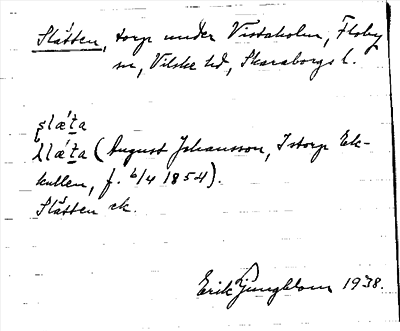 Slätten, torp under Vistaholm, Floby
sn, Vilske hd, Skaraborgs l.
slǽta
(August Johansson, Istorp Ek-
kullen, f. 6/4 1854).
Slätten ck.
Erik Ljungblom 1938.